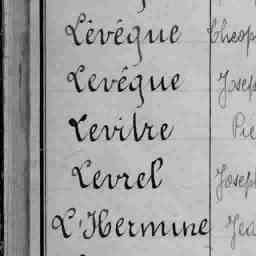 Lévégue Théop
Levégue Josep
Levitre Pie
Levrel Joseph
L'Hermine Jea